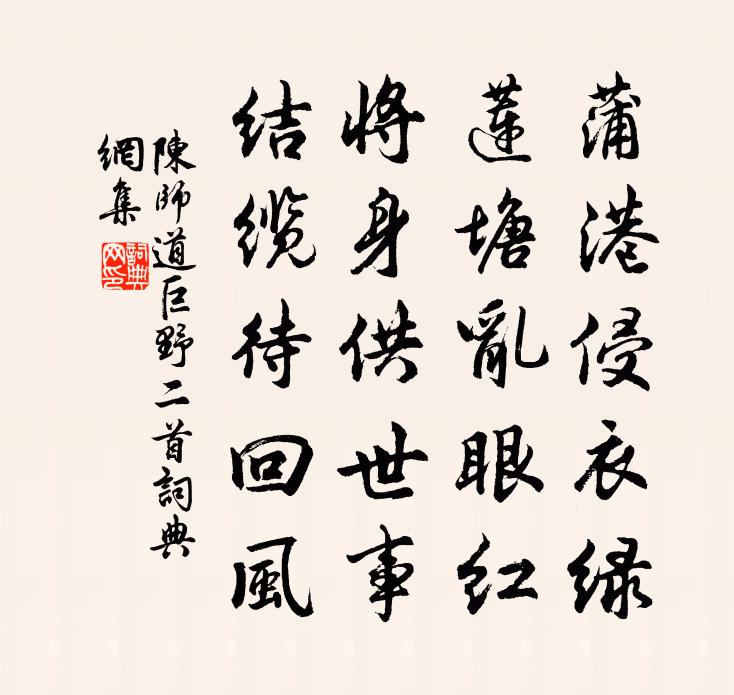 蒲港侵衣绿
莲塘亂眼红
将身供世事
结缆待回風
陳師道巨野二首詞典
網集
詞典
网印